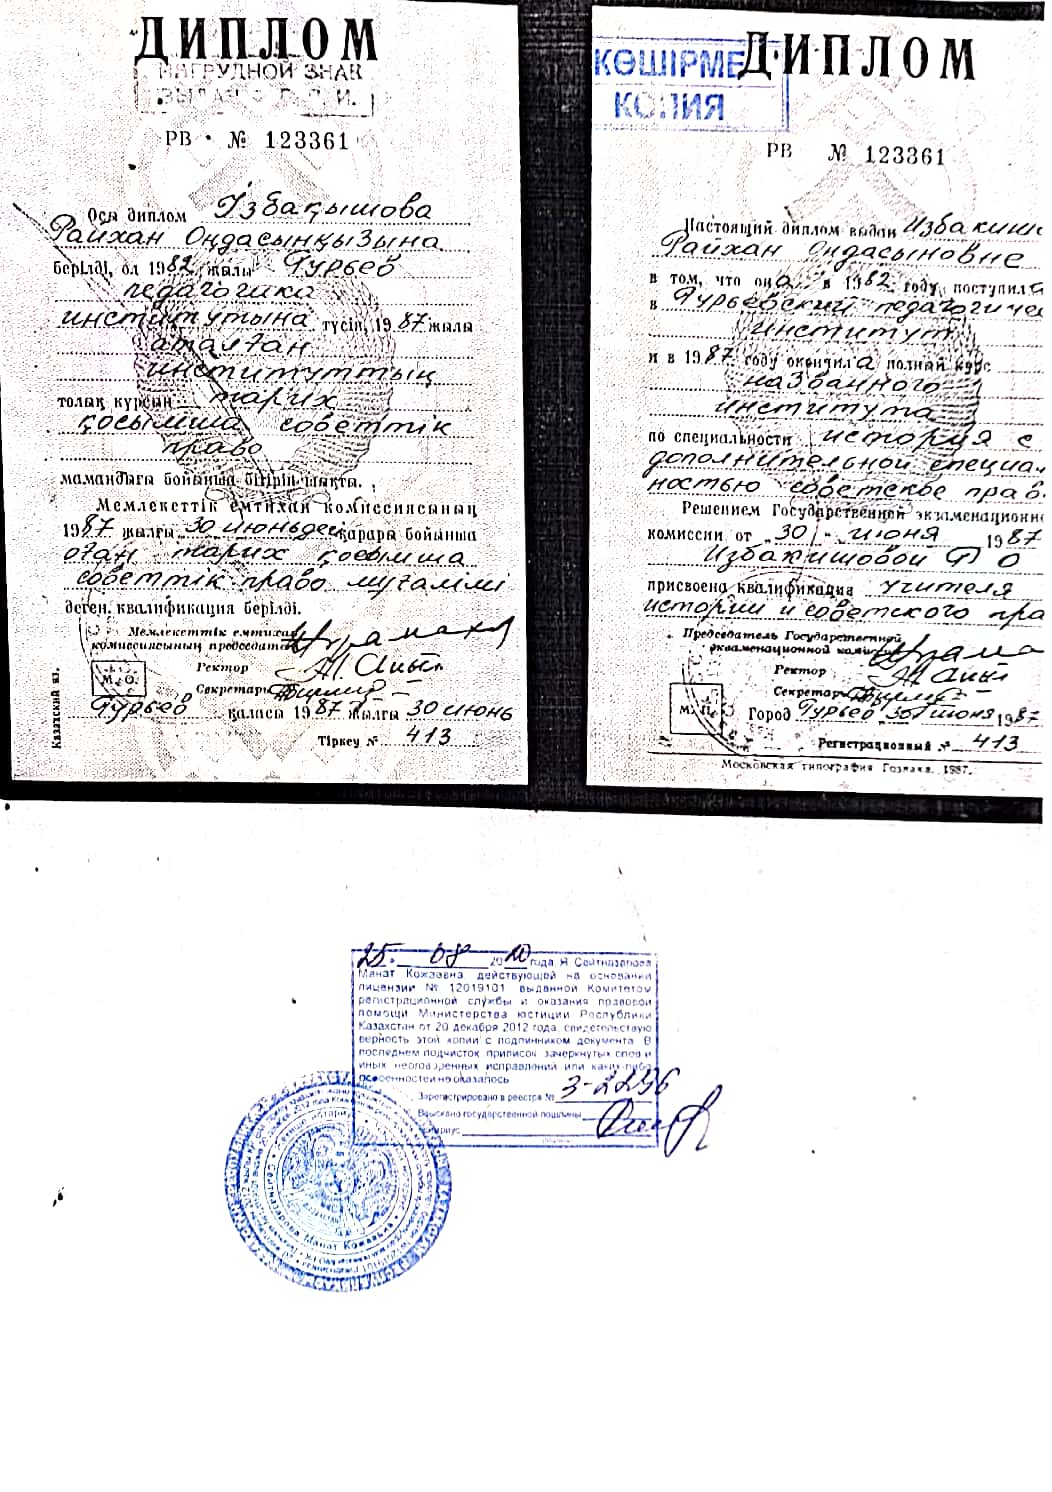 ДИПЛОМ
НАГРУДНОЙ ЗНАК
РВ № 123361
Осы диплом Ізбақышова
Райхан Оңдасынқызына
берілді, ол 1982 жылы Гурьев
педагогика
институтына түсіп, 1987 жылы
аталған
институттың
толық курсын тарих
қосымша советтік
право
мамандығы бойынша бітіріп шықты.
Мемлекеттік емтихан комиссиясының
1987 жылғы 30 июньдегі қарары бойынша
оған тарих қосымша
советтік право мұғалімі
деген квалификация берілді.
Мемлекеттік емтихан
комиссиясының председателі
Ректор
М.О.
Секретарь
Гурьев қаласы 1987 жылғы 30 июнь
Тіркеу № 413
Казахский яз.
КӨШІРМЕ
КОПИЯ
ДИПЛОМ
РВ № 123361
Настоящий диплом выдан Избакишо
Райхан Ондасыновне
в том, что она в 1982 году поступила
в Гурьевский педагогичес
институт
и в 1987 году окончила полный курс
названного
института
по специальности история с
дополнительной специаль
ностью советское прав
Решением Государственной экзаменационно
комиссии от 30 июня 1987
Избакишовой Р О
присвоена квалификация учителя
истории и советского пра
Председатель Государственной
экзаменационной комиссии
Ректор
Секретарь
М.П.
Город Гурьев 30 июня 1987
Регистрационный № 413
Московская типография Гознака. 1987.
25. 08 2010 года Я Сейтназарова
Манат Кожаевна действующей на основании
лицензии № 12019101 выданной Комитетом
регистрационной службы и оказания правовой
помощи Министерства юстиции Республики
Казахстан от 20 декабря 2012 года, свидетельствую
верность этой копии с подлинником документа. В
последнем подчисток, приписок, зачеркнутых слов и
иных неоговоренных исправлений или каких-либо
особенностей не оказалось
Зарегистрировано в реестре № 3-2296
Взыскано государственной пошлины
Нотариус
Сейтназарова Манат Кожаевна